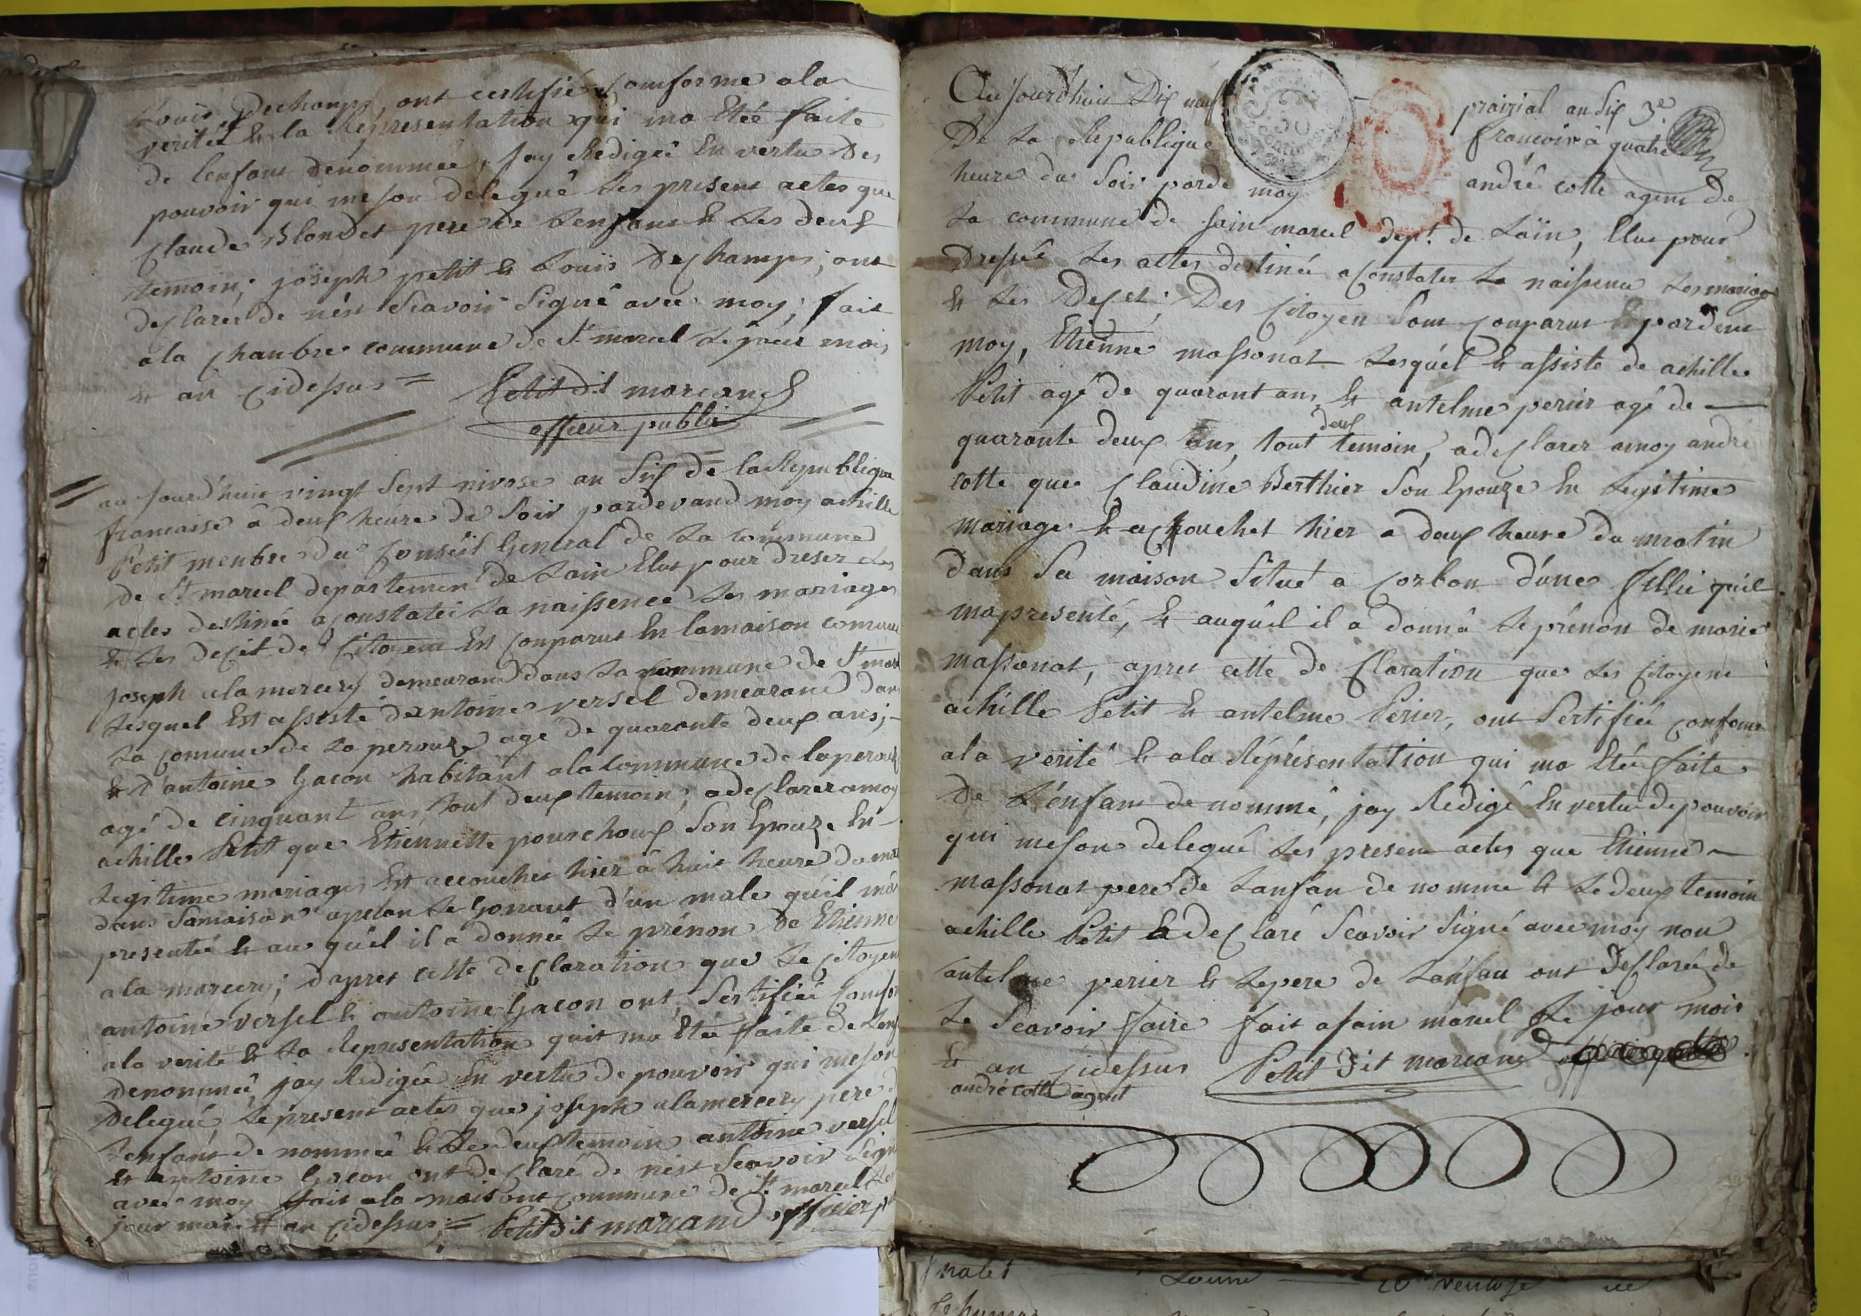 Louis Dechamps, ont certifié comforme a la
verité & la Representation qui ma Etée faite
de lenfant denommée, jay Redigée En vertu Des
pouvoir qui me son delegué Les present actes que
Claude Blondet pere de Lenfans & Les deux
temoin, joseph petit & Louis Dechamps, ont
declarer de nest Scavoir Signé avec moy, fait
a la chambre commune de St marcel Le jour mois
& an cidessus =
Petit dit marcand
officier public
au jourdhuie vingt Sept nivose an Six de la Republique
francaise à deux heure de Soir pardevand moy achille
Petit menbre du Conseil General de La commune
De St marcel departement de Lain Elus pour dreser Les
actes destinée a constater La naissence Les mariages
& Les decit des Citoyens Est conparut En lamaison comune
joseph alamercery demeurand dans La commune de St marcel
Lesquel Est assiste dantoine versel demeurand dans
La comune de La perouze agé de quarante deux ans;
& D'antoine Gacon habitant a la Commune de laperouze
agé de cinquant ans, tout deux temoin; a declarer a moy
achille Petit que Etiennette pourchoux Son Epouze En
Legitime mariages Est accouchet hier à huit heure du matin
dans Samaison apelan Le Gonant d'un male qu'il m'a
presentée & au quéil il a donnée Le prénon De Etienne
ala mercery; dapres cette declaration que Le Citoyen
antoine versel & antoine Gacon ont Sertifiée Comforme
ala verité & La Representation quit ma Etée faite de Lenfant
denommée, jay Redigée En vertu de pouvoir qui me son
Delegué Le present actes que joseph alamercery pere de
Lenfant de nommée & Les deux temoin antoine versel
& antoine Gacon ont declaré de nest Scavoir Signé
avec moy fait ala maisont commune de St marcel Le
jour mois & an cidessus; = Petit Dit marcand officier p
Au jourdhuie Dix neuf prairial an Six 3e
De La Republique francoise à quatre
heure du Soir parde moy andré cotte agent De
La commune de Sain marcel dept. de Lain, Elus pour
Dressée Les actes destinée a Constater La naissence Les mariages
& Les Deset; Des Citoyen Sont Conparus & pardevent
moy, Etienne massonat Lesquel & assiste de achille
Petit agé de quarant ans & antelme perier agé de
quarante deux ans, tout deux temoin, a declarer amoy andré
cotte que Claudine Berthier Son Epouze En Legitime
mariage & acchouchet hier a deux heure du matin
dans Sa maison Situet a Corbon d'une fillie quil
mapresenté, & auquil il a donné Le prénon de marie
massonat, apres cette de Claration que Les Citoyens
achille Petit & antelme Perier, ont Sertifiée conforme
ala verité & ala Représentation qui ma Etée faite
De L'énfant de nommé, jay Redigé En vertu de pouvoir
qui meson delegué Les present actes que Etienne
massonat pere de Lanfan de nomme & Le deux temoin
achille Petit a declaré Scavoir Signé avec moy non
antelme perier & Le pere de Lanfan ont Desclarée de
Le Scavoir faire fait a Sain marcel Le jour mois
& an cidessus Petit Dit marcand
andré cotte agent
Louise 20 ventose